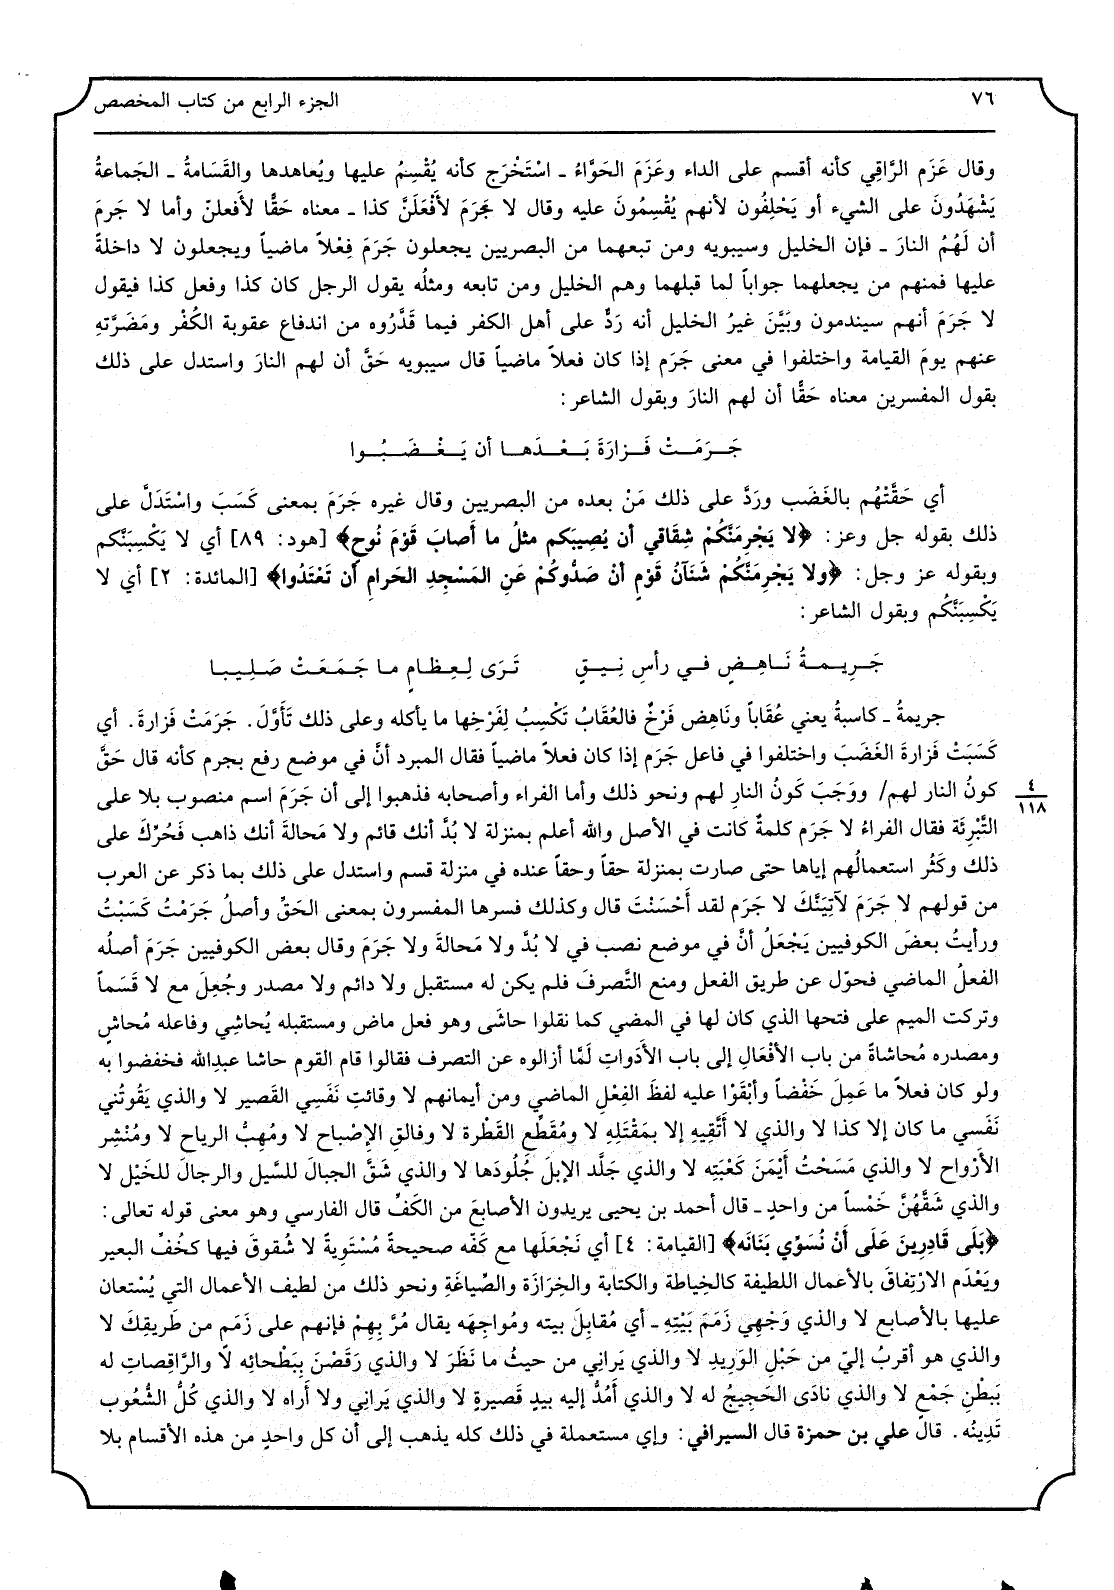 ٧٦
الجزء الرابع من كتاب المخصص
وقال عَزَم الرَّاقِي كأنه أقسم على الداء وعَزَم الحَوَّاءُ ـ اسْتَخْرَج كأنه يُقْسِمُ عليها ويُعاهدها والقَسَامةُ ـ الجَماعةُ
يَشْهَدُونَ على الشيء أو يَحْلِفُون لأنهم يُقْسِمُونَ عليه وقال لا جَرَمَ لأَفْعَلَنَّ كذا ـ معناه حَقًّا لأَفعلنّ وأما لا جَرمَ
أن لَهُمُ النارَ ـ فإن الخليل وسيبويه ومن تبعهما من البصريين يجعلون جَرَمَ فِعْلاً ماضياً ويجعلون لا داخلةً
عليها فمنهم من يجعلهما جواباً لما قبلهما وهم الخليل ومن تابعه ومثلُه يقول الرجل كان كذا وفعل كذا فيقول
لا جَرَمَ أنهم سيندمون وبَيَّنَ غيرُ الخليل أنه رَدٌّ على أهل الكفر فيما قَدَّرُوه من اندفاع عقوبة الكُفْر ومَضَرَّتهِ
عنهم يومَ القيامة واختلفوا في معنى جَرَم إذا كان فعلاً ماضياً قال سيبويه حَقَّ أن لهم النارَ واستدل على ذلك
بقول المفسرين معناه حَقًّا أن لهم النارَ وبقول الشاعر:
جَـرَمَـتْ فَـزارَةَ بَـعْـدَهـا أن يَـغْـضَـبُـوا
أي حَقَّتْهُم بالغَضَب ورَدَّ على ذلك مَنْ بعده من البصريين وقال غيره جَرَمَ بمعنى كَسَبَ واسْتَدَلَّ على
ذلك بقوله جل وعز: ﴿لا يَجْرِمَنَّكُمْ شِقَاقي أن يُصِيبَكم مثلُ ما أَصابَ قَوْمَ نُوحٍ﴾ [هود: ٨٩] أي لا يَكْسِبَنَّكم
وبقوله عز وجل: ﴿ولا يَجْرِمَنَّكُمْ شَنَآنُ قَوْمٍ أنْ صَدُّوكُمْ عَنِ المَسْجِدِ الحَرامِ أن تَعْتَدُوا﴾ [المائدة: ٢] أي لا
يَكْسِبَنَّكُم وبقول الشاعر:
جَرِيـمـةُ نَـاهِـضٍ فـي رأسِ نِـيـقٍ تَرَى لِـعِـظـامِ مـا جَـمَـعَـتْ صَـلِـيـبـا
جريمةُ ـ كاسبةُ يعني عُقَاباً ونَاهِض فَرْخٌ فالعُقَابُ تَكْسِبُ لِفَرْخِها ما يأكله وعلى ذلك تَأَوَّلَ. جَرَمَتْ فَزارةَ. أي
كَسَبَتْ فَزارةَ الغَضَبَ واختلفوا في فاعل جَرَم إذا كان فعلاً ماضياً فقال المبرد أنَّ في موضع رفع بجرم كأنه قال حَقَّ
كونُ النار لهم/ ووَجَبَ كَونُ النارِ لهم ونحو ذلك وأما الفراء وأصحابه فذهبوا إلى أن جَرَمَ اسم منصوب بلا على
٤
١١٨
التَّبْرِئَة فقال الفراءُ لا جَرَم كلمةٌ كانت في الأصل والله أعلم بمنزلة لا بُدَّ أنك قائم ولا مَحالةَ أنك ذاهب فَحُرِّكَ على
ذلك وكَثُر استعمالُهم إياها حتى صارت بمنزلة حقاً وحقاً عنده في منزلة قسم واستدل على ذلك بما ذكر عن العرب
من قولهم لا جَرَمَ لآتِيَنَّكَ لا جَرَم لقد أَحْسَنْتَ قال وكذلك فسرها المفسرون بمعنى الحَقِّ وأصلُ جَرَمْتُ كَسَبْتُ
ورأيتُ بعضَ الكوفيين يَجْعَلُ أنَّ في موضع نصب في لا بُدَّ ولا مَحالةَ ولا جَرَمَ وقال بعض الكوفيين جَرَمَ أصله
الفعلُ الماضي فحوّل عن طريق الفعل ومنع التَّصرفَ فلم يكن له مستقبل ولا دائم ولا مصدر وجُعِلَ مع لا قَسَماً
وتركت الميم على فتحها الذي كان لها في المضي كما نقلوا حاشَى وهو فعل ماض ومستقبله يُحاشِي وفاعله مُحاشٍ
ومصدره مُحاشاةً من باب الأفْعَالِ إلى باب الأَدَواتِ لَمَّا أزالوه عن التصرف فقالوا قام القوم حاشا عبدِالله فخفضوا به
ولو كان فعلاً ما عَمِلَ خَفْضاً وأبْقَوْا عليه لفظَ الفِعْلِ الماضي ومن أيمانهم لا وقائتِ نَفَسِي القَصير لا والذي يَقُوتُني
نَفَسي ما كان إلا كذا لا والذي لا أَتَّقِيه إلا بِمَقْتَلِه لا ومُقَطِّع القَطْرة لا وفالقِ الإصْباح لا ومُهِبُّ الرياح لا ومُنْشِر
الأرْواح لا والذي مَسَحْتُ أيْمَنَ كَعْبَتِه لا والذي جَلَّد الإبلَ جُلُودَها لا والذي شَقَّ الجبالَ للسَّيل والرجالَ للخَيْل لا
والذي شَقَّهُنَّ خَمْساً من واحدٍ ـ قال أحمد بن يحيى يريدون الأصابعَ من الكَفِّ قال الفارسي وهو معنى قوله تعالى:
﴿بَلَى قَادِرِينَ عَلَى أَنْ نُسَوِّي بَنَانَه﴾ [القيامة: ٤] أي نَجْعَلَها مع كَفّه صحيحةً مُسْتَوِيةً لا شُقوقَ فيها كخُفِّ البعير
ويَعْدَم الارْتِفاقَ بالأعمال اللطيفة كالخِياطة والكتابة والخِرَازَة والصِّياغَةِ ونحو ذلك من لطيف الأعمال التي يُسْتعان
عليها بالأصابع لا والذي وَجْهِي زَمَمَ بَيْتِهِ ـ أي مُقابِلَ بيته ومُواجِهَه يقال مُرَّ بِهِمْ فإنهم على زَمَم من طَريقِكَ لا
والذي هو أقربُ إليّ من حَبْلِ الوَرِيدِ لا والذي يَراني من حيثُ ما نَظَرَ لا والذي رَقَصْنَ بِبَطْحائِه لا والرَّاقِصاتِ له
بَبطْنِ جَمْعٍ لا والذي نادَى الحَجِيجُ له لا والذي أَمُدُّ إليه بيدٍ قَصيرةٍ لا والذي يَرانِي ولا أَراه لا والذي كُلُّ الشُّعُوب
تَدِينُه. قال علي بن حمزة قال السيرافي: وإي مستعملة في ذلك كله يذهب إلى أن كل واحدٍ من هذه الأقسام بلا